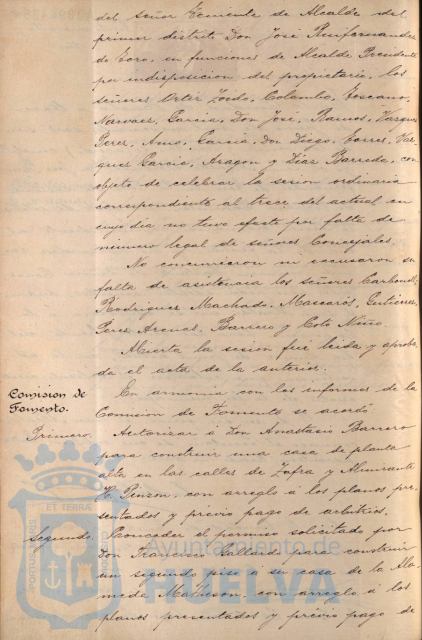 del señor Teniente de Alcalde del
primer distrito Don José
de Toro, en funciones de Alcalde Presidente
por indisposicion del propietario, los
señores Ortiz, Colombo, Toscano,
Narvaez, Garcia Don José, Ramos, Vazquez
Perez, Garcia Don Diego, Torres, Vaz-
quez Garcia, Aragon y Diaz Barreda, con
objeto de celebrar la sesion ordinaria
correspondiente al trece del actual en
cuyo dia no tuvo efecto por falta de
número legal de señores Concejales.
No concurrieron ni excusaron su
falta de asistencia los señores Carbonell,
Rodriguez Machado, Mascarós, Gutierrez,
Perez, Barrero y Coto
Abierta la sesion fué leida y aproba-
da el acta de la anterior.
Comision de
Fomento.
En armonia con los informes de la
Comision de Fomento se acordó
Primero. Autorizar á Don Anastasio Barrero
para construir una casa de planta
alta en las calles de Zafra y Almirante
H. Pinzon, con arreglo a los planos pre-
sentados y previo pago de arbitrios.
Segundo. Conceder el permiso solicitado por
Don Gallardo para construir
un segundo piso á su casa de la Ala-
meda Matheson, con arreglo á los
planos presentados y previo pago de
PORTUS MARIS ET TERRÆ CUSTODIA
Ayuntamiento de
HUELVA